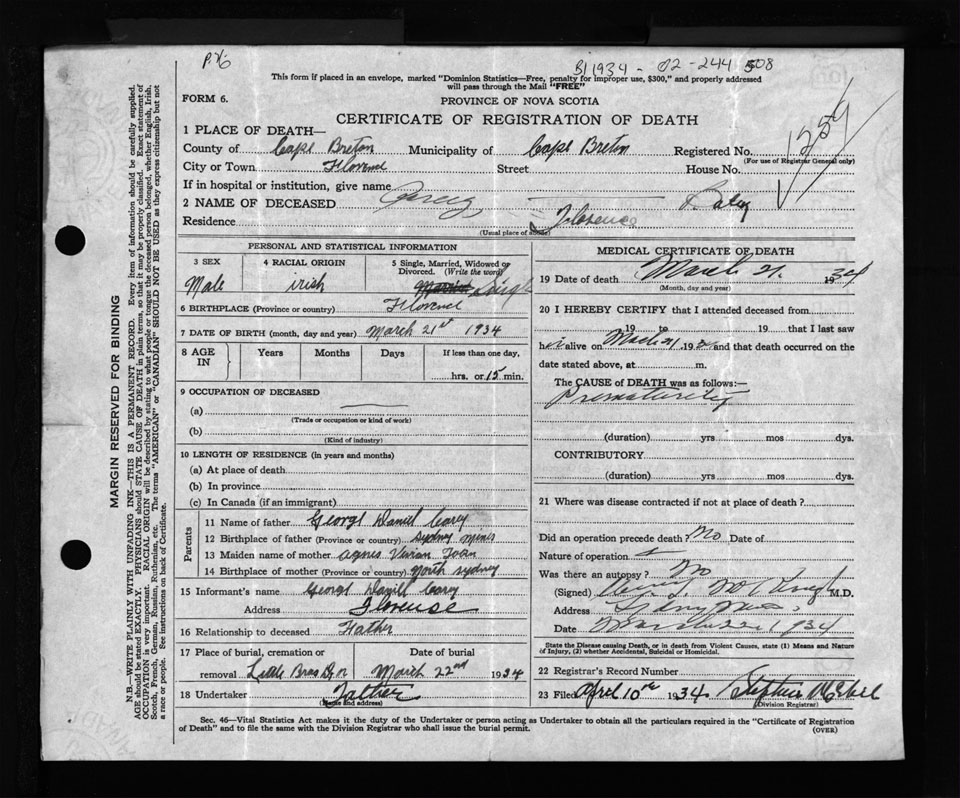 B1 1934 - 02-244 508
This form if placed in an envelope, marked "Dominion Statistics—Free, penalty for improper use, $300," and properly addressed
will pass through the Mail "FREE"
FORM 6.
PROVINCE OF NOVA SCOTIA
CERTIFICATE OF REGISTRATION OF DEATH
1259
1 PLACE OF DEATH—
County of Cape Breton Municipality of Cape Breton Registered No.
(For use of Registrar General only)
City or Town Florence Street House No.
If in hospital or institution, give name
2 NAME OF DECEASED Carey Baby
Residence Florence
(Usual place of abode)
PERSONAL AND STATISTICAL INFORMATION
3 SEX 4 RACIAL ORIGIN 5 Single, Married, Widowed or Divorced. (Write the word)
Male irish Married Single
6 BIRTHPLACE (Province or country) Florence
7 DATE OF BIRTH (month, day and year) March 21st 1934
8 AGE IN Years Months Days If less than one day,
hrs. or 15 min.
9 OCCUPATION OF DECEASED
(a)
(Trade or occupation or kind of work)
(b)
(Kind of industry)
10 LENGTH OF RESIDENCE (in years and months)
(a) At place of death
(b) In province
(c) In Canada (if an immigrant)
Parents
11 Name of father George Daniel Carey
12 Birthplace of father (Province or country) Sydney Mines
13 Maiden name of mother Agnes Vivian
14 Birthplace of mother (Province or country) North Sydney
15 Informant's name George Daniel Carey
Address Florence
16 Relationship to deceased Father
17 Place of burial, cremation or removal Date of burial
Little Bras D'or March 22nd 1934
18 Undertaker Father
(Name and address)
MEDICAL CERTIFICATE OF DEATH
19 Date of death March 21. 1934
(Month, day and year)
20 I HEREBY CERTIFY that I attended deceased from
19 to 19 that I last saw
h alive on March 21 19 and that death occurred on the
date stated above, at m.
The CAUSE of DEATH was as follows:—
Prematurity
(duration) yrs mos dys.
CONTRIBUTORY
(duration) yrs mos dys.
21 Where was disease contracted if not at place of death?
Did an operation precede death? No Date of
Nature of operation
Was there an autopsy? No
(Signed) M.D.
Address Sydney Mines
Date March 22 1934
State the Disease causing Death, or in death from Violent Causes, state (1) Means and Nature
of Injury, (2) whether Accidental, Suicidal or Homicidal.
22 Registrar's Record Number
23 Filed April 10th 1934 Stephen
(Division Registrar)
Sec. 46—Vital Statistics Act makes it the duty of the Undertaker or person acting as Undertaker to obtain all the particulars required in the "Certificate of Registration
of Death" and to file the same with the Division Registrar who shall issue the burial permit.
(OVER)
MARGIN RESERVED FOR BINDING
N.B.—WRITE PLAINLY WITH UNFADING INK—THIS IS A PERMANENT RECORD. Every item of information should be carefully supplied.
AGE should be stated EXACTLY. PHYSICIANS should STATE CAUSE OF DEATH in plain terms, so that it may be properly classified. Exact statement of
OCCUPATION is very important. RACIAL ORIGIN will be described by stating to what people or tongue the deceased person belonged, whether English, Irish,
Scotch, French, German, Russian, Ruthenian, etc. The terms "AMERICAN" or "CANADIAN" SHOULD NOT BE USED as they express citizenship but not
a race or people. See instructions on back of Certificate.